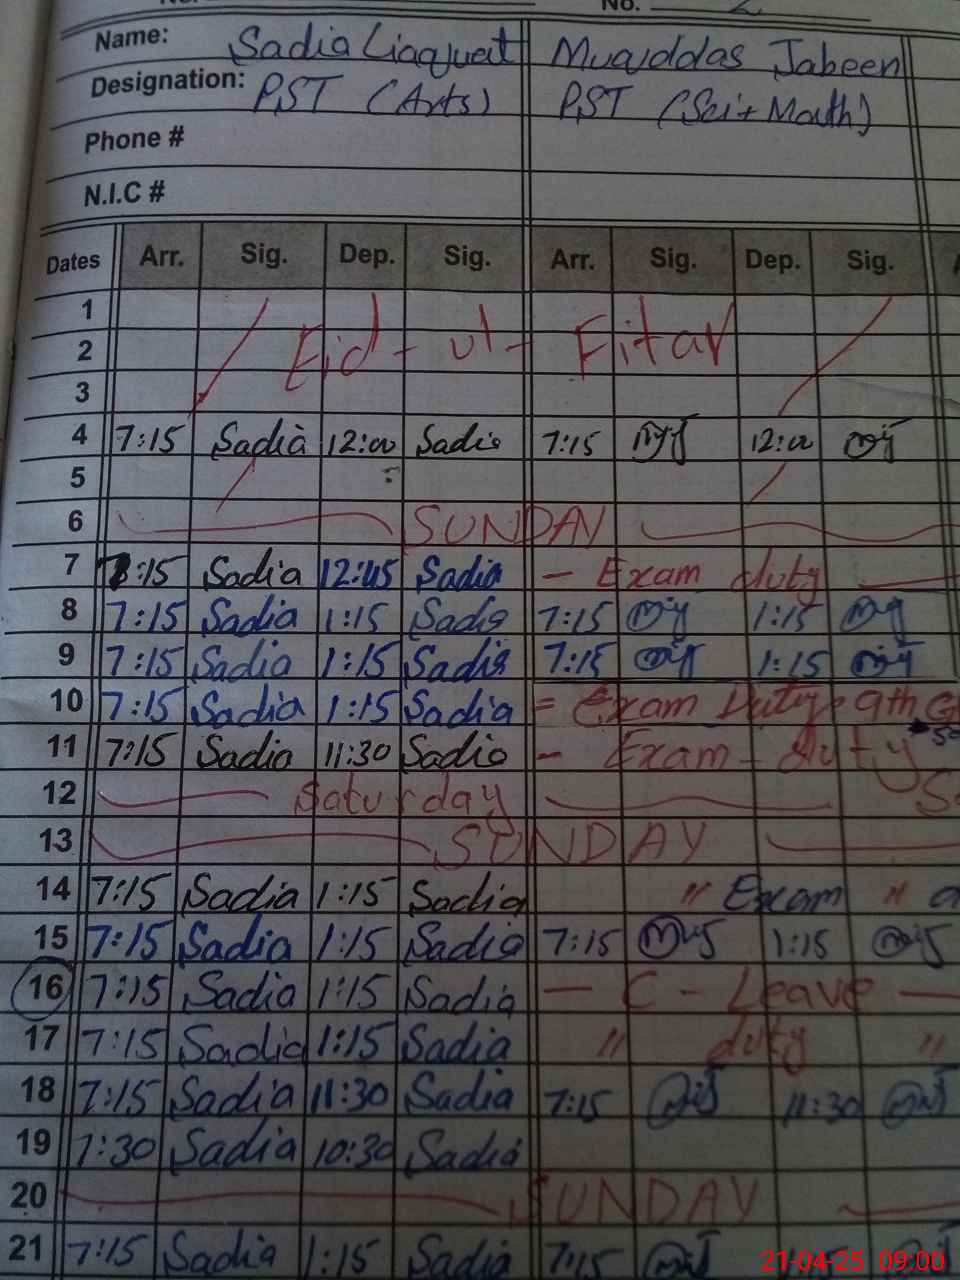 No. 2
Name: Sadia Liaquat Muqaddas Jabeen
Designation: PST (Arts) PST (Sci + Math)
Phone #
N.I.C #
Dates Arr. Sig. Dep. Sig. Arr. Sig. Dep. Sig.
1
2 Eid - ul - Fitar
3
4 7:15 Sadia 12:00 Sadia 7:15 12:00
5
6 SUNDAY
7 7:15 Sadia 12:45 Sadia - Exam duty
8 7:15 Sadia 1:15 Sadia 7:15 1:15
9 7:15 Sadia 1:15 Sadia 7:15 1:15
10 7:15 Sadia 1:15 Sadia = Exam Duty 9th
11 7:15 Sadia 11:30 Sadia - Exam - duty
12 Saturday
13 SUNDAY
14 7:15 Sadia 1:15 Sadia " Exam "
15 7:15 Sadia 1:15 Sadia 7:15 1:15
16 7:15 Sadia 1:15 Sadia - C - Leave -
17 7:15 Sadia 1:15 Sadia " duty "
18 7:15 Sadia 11:30 Sadia 7:15 11:30
19 7:30 Sadia 10:30 Sadia
20 SUNDAY
21 7:15 Sadia 1:15 Sadia 7:15
21-04-25 09:00